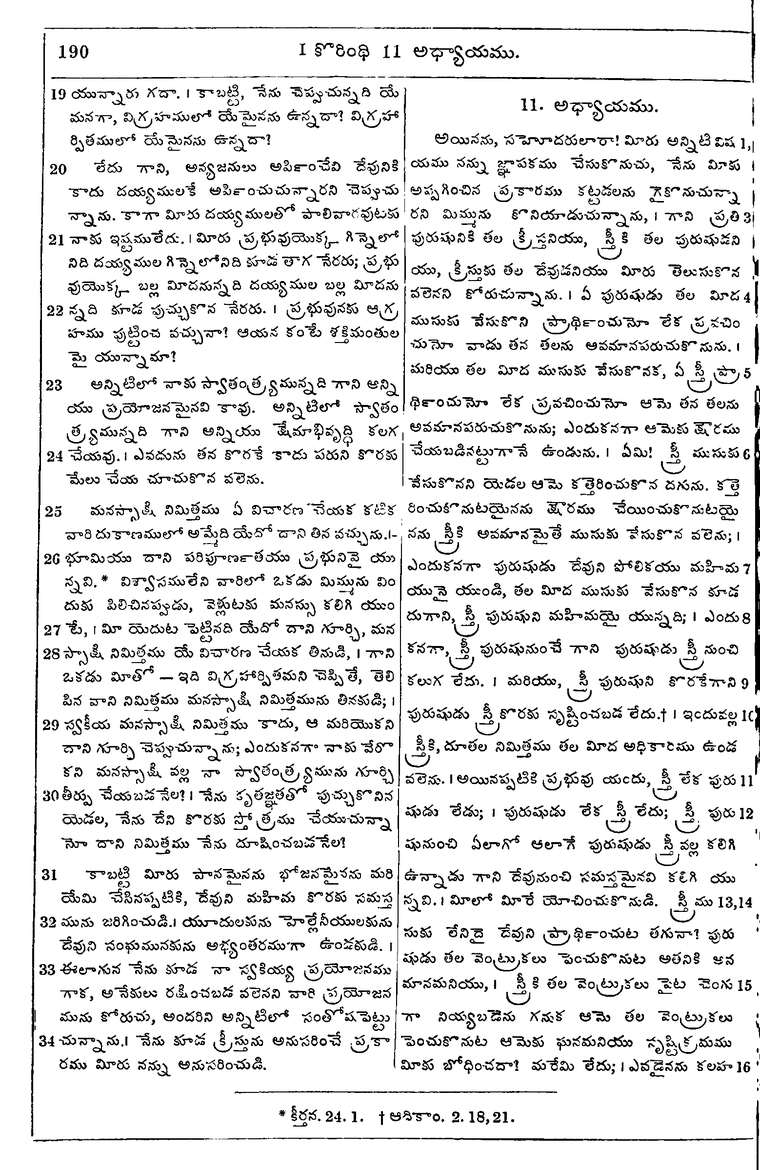 190
I కొరింథి 11 అధ్యాయము.
19 యున్నారు గదా. । కాబట్టి, నేను చెప్పుచున్నది యే
మనగా, విగ్రహములో యేమైనను ఉన్నదా? విగ్రహా
ర్పితములో యేమైనను ఉన్నదా?
20 లేదు గాని, అన్యజనులు అర్పించేవి దేవునికి
కాదు దయ్యములకే అర్పించుచున్నారని చెప్పుచు
న్నాను. కాగా మీరు దయ్యములతో పాలివారవుటకు
21 నాకు ఇష్టములేదు. । మీరు ప్రభువుయొక్క గిన్నెలో
నిది దయ్యముల గిన్నెలోనిది కూడ తాగ నేరరు; ప్రభు
వుయొక్క బల్ల మీదనున్నది దయ్యముల బల్ల మీదను
22 న్నది కూడ పుచ్చుకొన నేరరు. । ప్రభువునకు ఆగ్ర
హము పుట్టించ వచ్చునా? ఆయన కంటే శక్తిమంతుల
మై యున్నామా?
23 అన్నిటిలో నాకు స్వాతంత్ర్యమున్నది గాని అన్ని
యు ప్రయోజనమైనవి కావు. అన్నిటిలో స్వాతం
త్ర్యమున్నది గాని అన్నియు క్షేమాభివృద్ధి కలగ
24 చేయవు. । ఎవడును తన కొరకే కాదు పరుని కొరకు
మేలు చేయ చూచుకొన వలెను.
25 మనస్సాక్షి నిమిత్తము ఏ విచారణ చేయక కటిక
వారి దుకాణములో అమ్మేది యేదో దాని తిన వచ్చును. ।-
26 భూమియు దాని పరిపూర్ణతయు ప్రభునివై యు
న్నవి. * విశ్వాసములేని వారిలో ఒకడు మిమ్మును విం
దుకు పిలిచినప్పుడు, వెళ్లుటకు మనస్సు కలిగి యుం
27 టే, । మీ యెదుట పెట్టినది యేదో దాని గూర్చి, మన
28 స్సాక్షి నిమిత్తము యే విచారణ చేయక తినుడి, । గాని
ఒకడు మీతో — ఇది విగ్రహార్పితమని చెప్పితే, తెలి
పిన వాని నిమిత్తము మనస్సాక్షి నిమిత్తమును తినకుడి; ।
29 స్వకీయ మనస్సాక్షి నిమిత్తము కాదు, ఆ మరియొకని
దాని గూర్చి చెప్పుచున్నాను; ఎందుకనగా నాకు వేరొ
కని మనస్సాక్షి వల్ల నా స్వాతంత్ర్యమును గూర్చి
30 తీర్పు చేయబడనేల? । నేను కృతజ్ఞతతో పుచ్చుకొనిన
యెడల, నేను దేని కొరకు స్తోత్రము చేయుచున్నా
నో దాని నిమిత్తము నేను దూషించబడనేల?
31 కాబట్టి మీరు పానమైనను భోజనమైనను మరి
యేమి చేసినప్పటికి, దేవుని మహిమ కొరకు సమస్త
32 మును జరిగించుడి. । యూదులకును హెల్లేనీయులకును
దేవుని సంఘమునకును అభ్యంతరముగా ఉండకుడి. ।
33 ఈలాగున నేను కూడ నా స్వకీయ్య ప్రయోజనము
గాక, అనేకులు రక్షించబడ వలెనని వారి ప్రయోజన
మును కోరుచు, అందరిని అన్నిటిలో సంతోషపెట్టు
34 చున్నాను. । నేను కూడ క్రీస్తును అనుసరించే ప్రకా
రము మీరు నన్ను అనుసరించుడి.
11. అధ్యాయము.
అయినను, సహోదరులారా! మీరు అన్నిటి విష 1,
యము నన్ను జ్ఞాపకము చేసుకొనుచు, నేను మీకు
అప్పగించిన ప్రకారము కట్టడలను గైకొనుచున్నా
రని మిమ్మును కొనియాడుచున్నాను, । గాని ప్రతి 3
పురుషునికి తల క్రీస్తనియు, స్త్రీకి తల పురుషుడని
యు, క్రీస్తుకు తల దేవుడనియు మీరు తెలుసుకొన
వలెనని కోరుచున్నాను. । ఏ పురుషుడు తల మీద 4
ముసుకు వేసుకొని ప్రార్థించునో లేక ప్రవచిం
చునో వాడు తన తలను అవమానపరుచుకొనును. ।
మరియు తల మీద ముసుకు వేసుకొనక, ఏ స్త్రీ ప్రా 5
ర్థించునో లేక ప్రవచించునో ఆమె తన తలను
అవమానపరుచుకొనును; ఎందుకనగా ఆమెకు క్షౌరము
చేయబడినట్టుగానే ఉండును. । ఏమి! స్త్రీ ముసుకు 6
వేసుకొనని యెడల ఆమె కత్తెరించుకొన దగును. కత్తె
రించుకొనుటయైనను క్షౌరము చేయించుకొనుటయై
నను స్త్రీకి అవమానమైతే ముసుకు వేసుకొన వలెను; ।
ఎందుకనగా పురుషుడు దేవుని పోలికయు మహిమ 7
యునై యుండి, తల మీద ముసుకు వేసుకొన కూడ
దుగాని, స్త్రీ పురుషుని మహిమయై యున్నది; । ఎందు 8
కనగా, స్త్రీ పురుషునుంచే గాని పురుషుడు స్త్రీనుంచి
కలుగ లేదు. । మరియు, స్త్రీ పురుషుని కొరకేగాని 9
పురుషుడు స్త్రీ కొరకు సృష్టించబడ లేదు.† । ఇందువల్ల 10
స్త్రీకి, దూతల నిమిత్తము తల మీద అధికారము ఉండ
వలెను. । అయినప్పటికి ప్రభువు యందు, స్త్రీ లేక పురు 11
షుడు లేడు; । పురుషుడు లేక స్త్రీ లేదు; స్త్రీ పురు 12
షునుంచి ఏలాగో ఆలాగే పురుషుడు స్త్రీ వల్ల కలిగి
ఉన్నాడు గాని దేవునుంచి సమస్తమైనవి కలిగి యు
న్నవి. । మీలో మీరే యోచించుకొనుడి. స్త్రీ ము 13,14
సుకు లేనిదై దేవుని ప్రార్థించుట తగునా? పురు
షుడు తల వెంట్రుకలు పెంచుకొనుట అతనికి అవ
మానమనియు, । స్త్రీకి తల వెంట్రుకలు పైట చెంగు 15
గా నియ్యబడెను గనుక ఆమె తల వెంట్రుకలు
పెంచుకొనుట ఆమెకు ఘనమనియు సృష్టిక్రమము
మీకు బోధించదా? మరేమి లేదు; । ఎవడైనను కలహ 16
* కీర్తన. 24. 1. † ఆదికాం. 2. 18, 21.